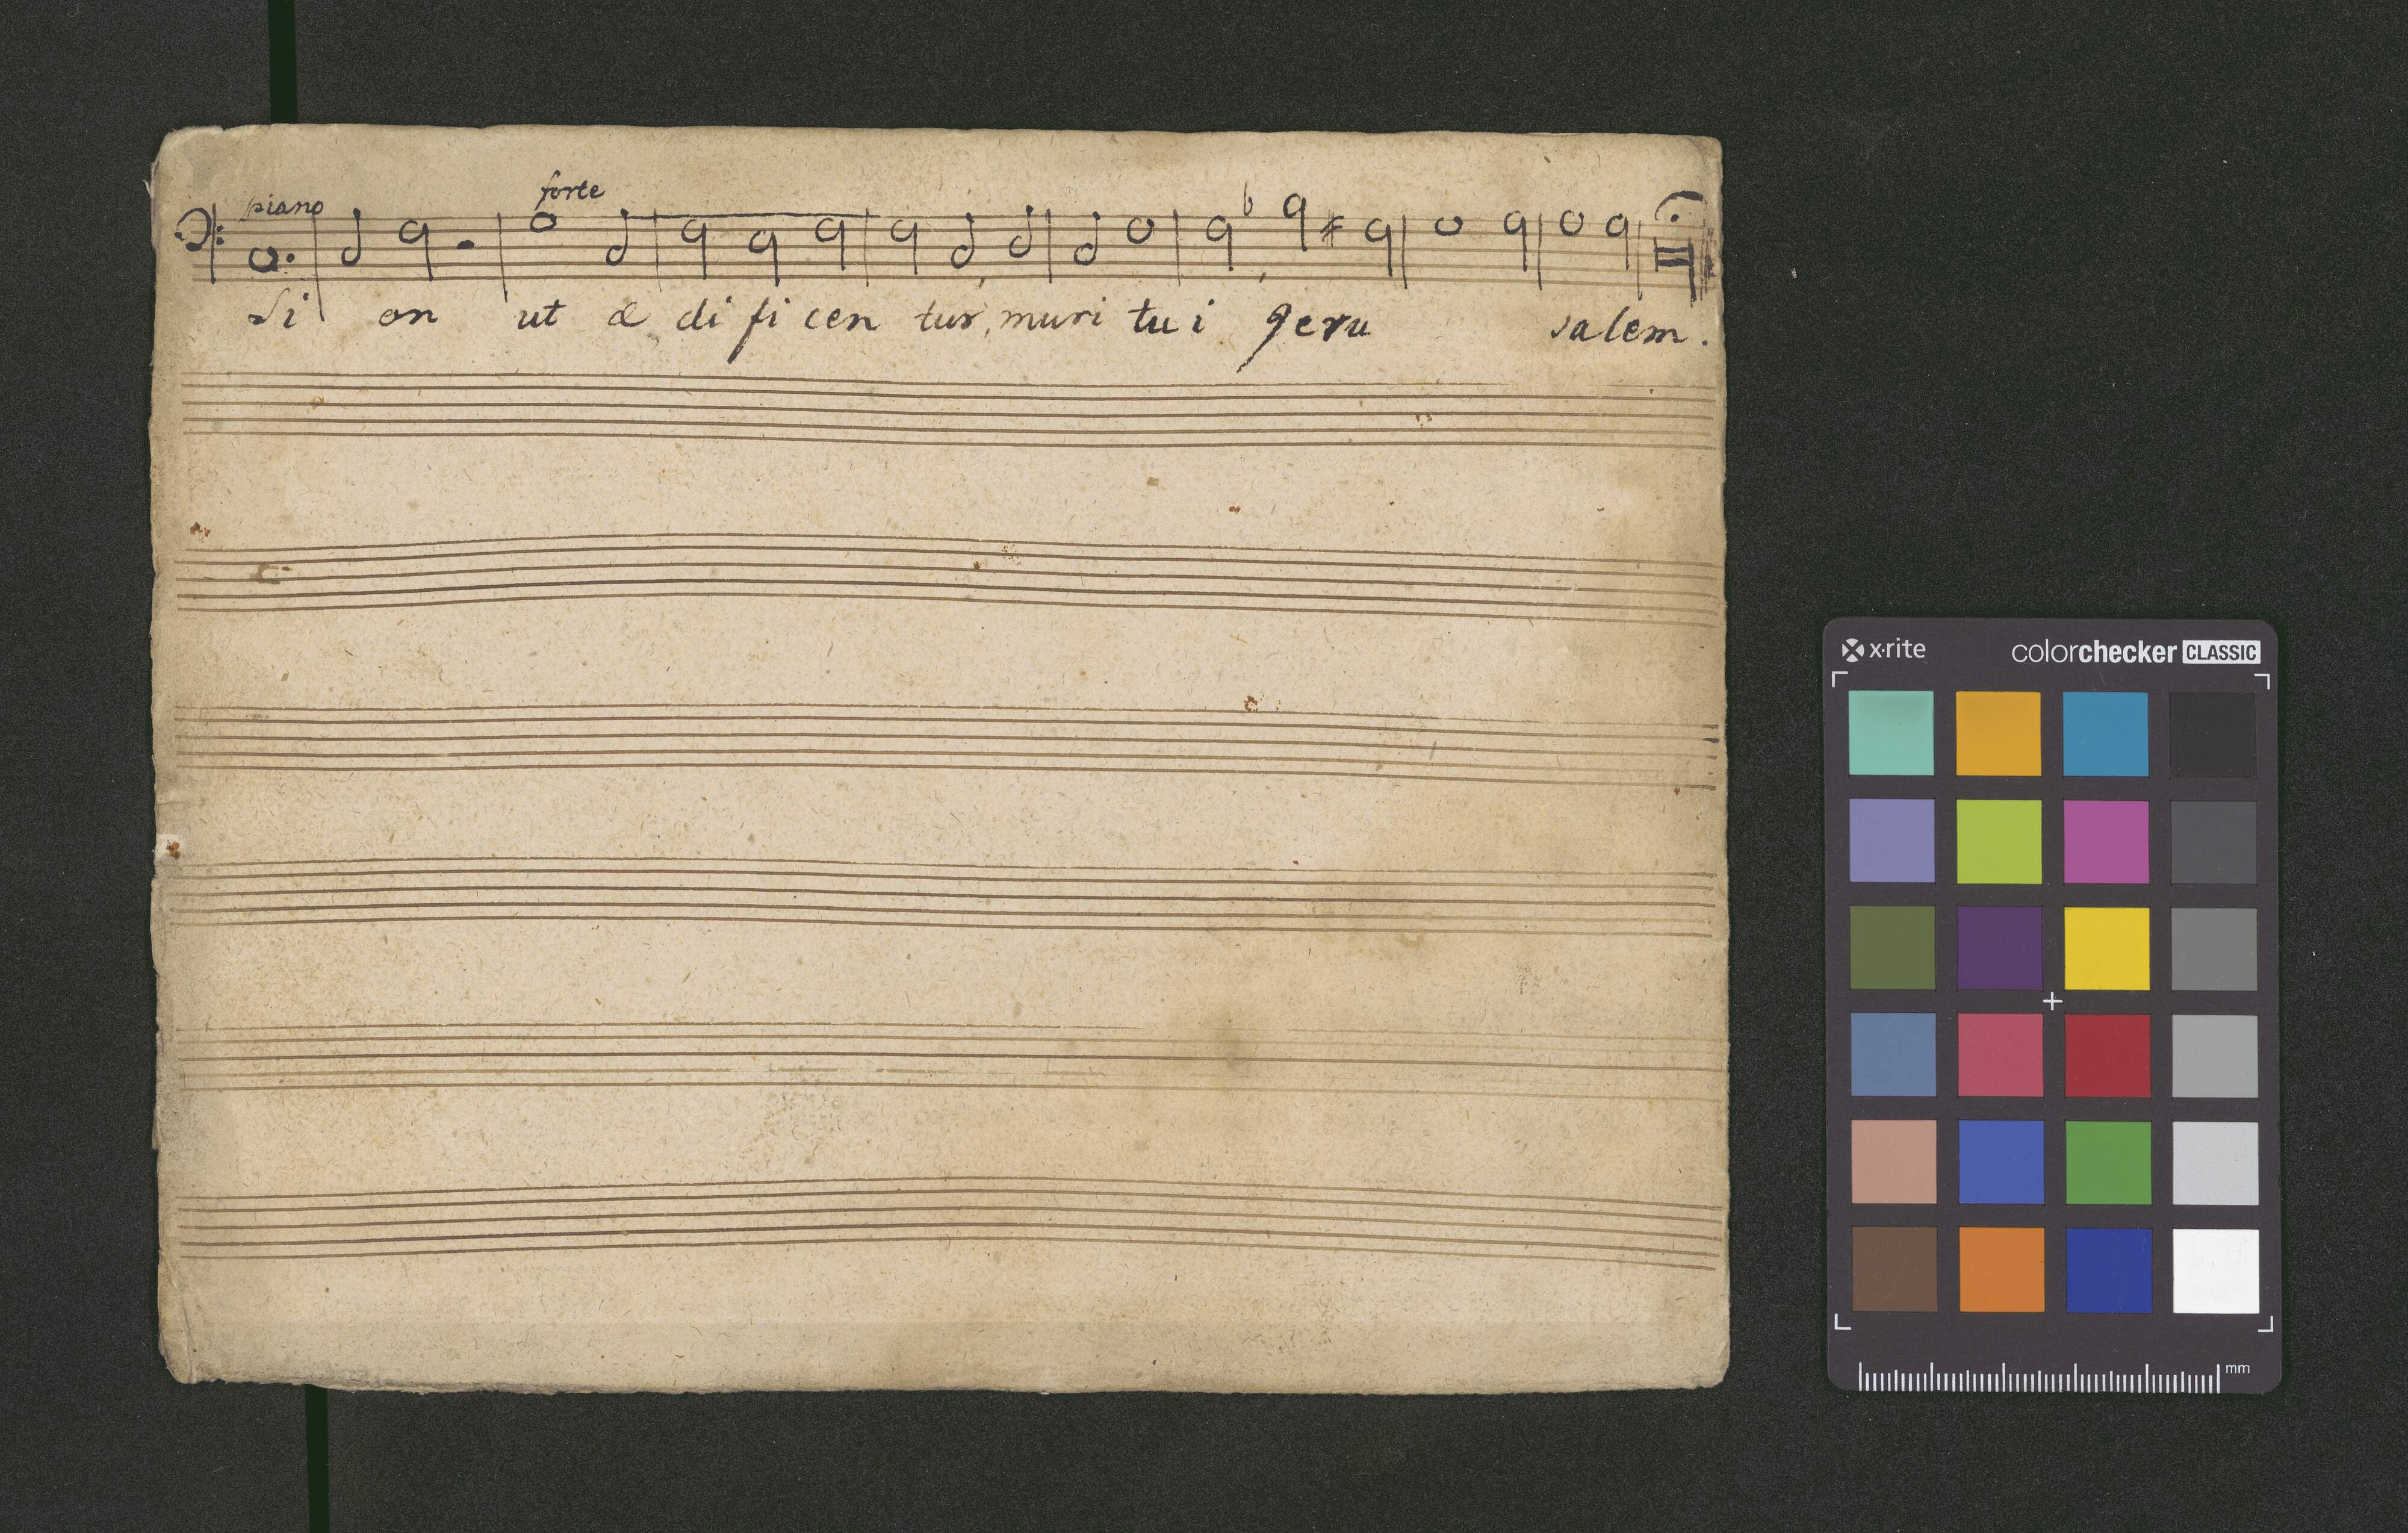 piano forte
Si on ut æ di fi cen tur, muri tu i Jeru salem.
x·rite colorchecker CLASSIC
mm